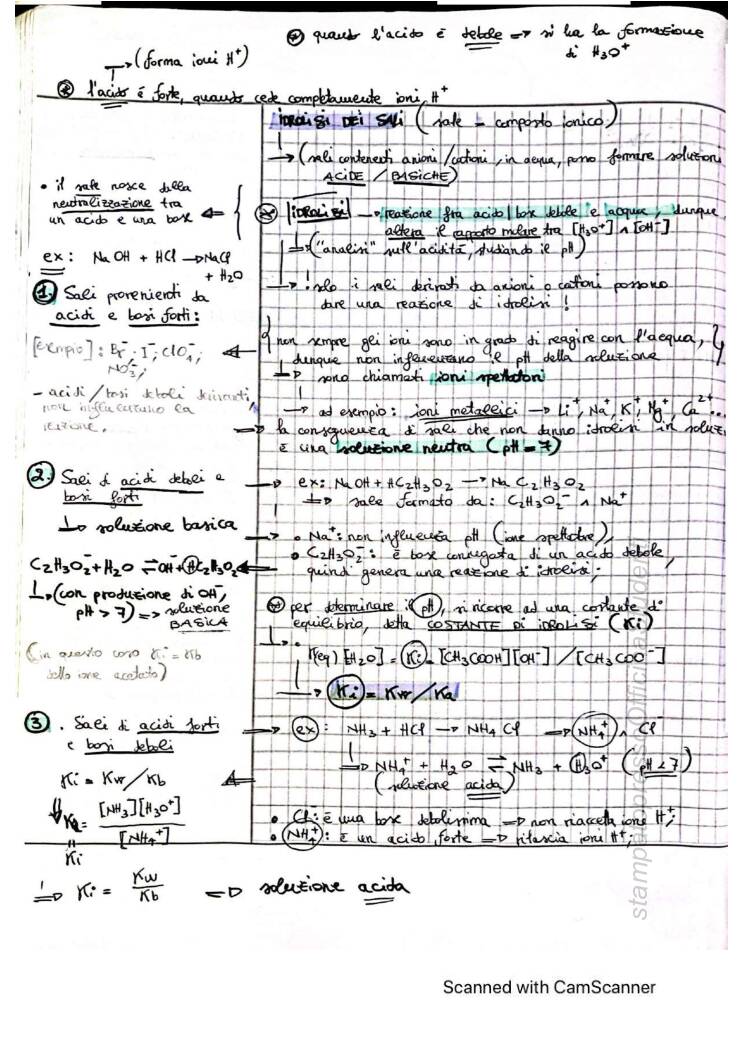 ⊛ quando l'acido è debole => si ha la formazione
di H₃O⁺
→ (forma ioni H⁺)
⊛ l'acido è forte, quando cede completamente ioni H⁺
IDROLISI DEI SALI (sale = composto ionico)
→ (sali contenenti anioni / cationi, in acqua, formare soluzioni
ACIDE / BASICHE)
• il sale nasce dalla
neutralizzazione tra
un acido e una base
ex: NaOH + HCl → NaCl
+ H₂O
⊛ IDROLISI → reazione fra acido | base debole e acqua, dunque
altera il rapporto molare tra [H₃O⁺] ∧ [OH⁻]
=> ("analisi" sull'acidità, studiando il pH)
→ ! solo i sali derivati da anioni o cationi possono
dare una reazione di idrolisi !
1. Sali provenienti da
acidi e basi forti:
[esempio]: Br⁻, I⁻, ClO₄⁻,
NO₃⁻,
- acidi / basi deboli derivanti
non influenzano la
reazione.
{ non sempre gli ioni sono in grado di reagire con l'acqua, }
dunque non influenzano il pH della soluzione
=> sono chiamati ioni spettatori
→ ad esempio: ioni metallici → Li⁺, Na⁺, K⁺, Mg⁺, Ca²⁺...
=> la conseguenza di sali che non danno idrolisi in soluz
è una soluzione neutra (pH = 7)
2. Sali di acidi deboli e
basi forti
↳ soluzione basica
C₂H₃O₂⁻ + H₂O ⇌ OH⁻ + HC₂H₃O₂
↳ (con produzione di OH⁻,
pH > 7) => soluzione
BASICA
(in questo caso Ki = Kb
dello ione acetato)
→ ex: NaOH + HC₂H₃O₂ → Na C₂H₃O₂
=> sale formato da: C₂H₃O₂⁻ ∧ Na⁺
→ • Na⁺: non influenza pH (ione spettatore),
• C₂H₃O₂⁻: è base coniugata di un acido debole,
quindi genera una reazione di idrolisi;
⊛ per determinare il pH, si ricorre ad una costante di
equilibrio, detta COSTANTE DI IDROLISI (Ki)
K(eq) [H₂O] = Ki = [CH₃COOH][OH⁻] / [CH₃COO⁻]
→ Ki = Kw/Ka
3. Sali di acidi forti
e basi deboli
Ki = Kw/Kb
Ka = [NH₃][H₃O⁺]
[NH₄⁺]
Ki
=> Ki = Kw/Kb => soluzione acida
→ ex: NH₃ + HCl → NH₄Cl => NH₄⁺ ∧ Cl⁻
=> NH₄⁺ + H₂O ⇌ NH₃ + H₃O⁺ (pH < 7)
(soluzione acida)
• Cl⁻: è una base debolissima => non riaccetta ioni H⁺;
• NH₄⁺: è un acido forte => rilascia ioni H⁺;
Scanned with CamScanner